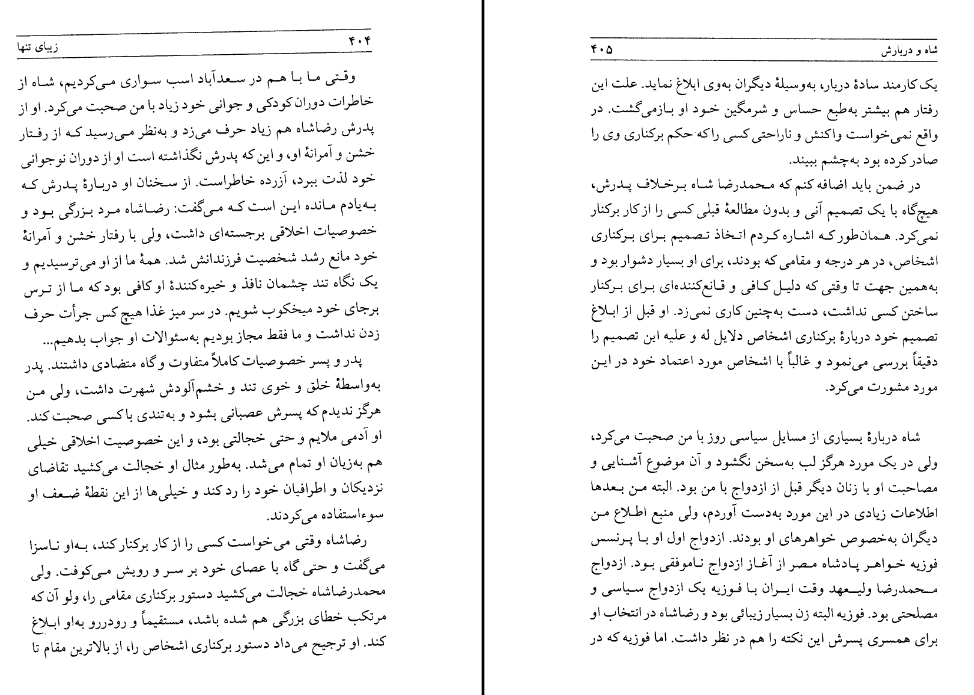 ۴۰۴ زیبای تنها
وقتی ما با هم در سعدآباد اسب سواری می‌کردیم، شاه از
خاطرات دوران کودکی و جوانی خود زیاد با من صحبت می‌کرد. او از
پدرش رضاشاه هم زیاد حرف می‌زد و به‌نظر می‌رسید که از رفتار
خشن و آمرانهٔ او، و این‌که پدرش نگذاشته است او از دوران نوجوانی
خود لذت ببرد، آزرده خاطراست. از سخنان او دربارهٔ پدرش که
به‌یادم مانده این است که می‌گفت: رضاشاه مرد بزرگی بود و
خصوصیات اخلاقی برجسته‌ای داشت، ولی با رفتار خشن و آمرانهٔ
خود مانع رشد شخصیت فرزندانش شد. همهٔ ما از او می‌ترسیدیم و
یک نگاه تند چشمان نافذ و خیره‌کنندهٔ او کافی بود که ما از ترس
برجای خود میخکوب شویم. در سر میز غذا هیچ‌کس جرأت حرف
زدن نداشت و ما فقط مجاز بودیم به‌سئوالات او جواب بدهیم...
پدر و پسر خصوصیات کاملاً متفاوت و گاه متضادی داشتند. پدر
به‌واسطهٔ خلق و خوی تند و خشم‌آلودش شهرت داشت، ولی من
هرگز ندیدم که پسرش عصبانی بشود و به‌تندی باکسی صحبت کند.
او آدمی ملایم و حتی خجالتی بود، و این خصوصیت اخلاقی خیلی
هم به‌زیان او تمام می‌شد. به‌طور مثال او خجالت می‌کشید تقاضای
نزدیکان و اطرافیان خود را رد کند و خیلی‌ها از این نقطهٔ ضعف او
سوءاستفاده می‌کردند.
رضاشاه وقتی می‌خواست کسی را از کار برکنار کند، به‌او ناسزا
می‌گفت و حتی گاه با عصای خود بر سر و رویش می‌کوفت. ولی
محمدرضاشاه خجالت می‌کشید دستور برکناری مقامی را، ولو آن‌که
مرتکب خطای بزرگی هم شده باشد، مستقیماً و رودررو به‌او ابلاغ
کند. او ترجیح می‌داد دستور برکناری اشخاص را، از بالاترین مقام تا
شاه و دربارش ۴۰۵
یک کارمند سادهٔ دربار، به‌وسیلهٔ دیگران به‌وی ابلاغ نماید. علت این
رفتار هم بیشتر به‌طبع حساس و شرمگین خود او بازمی‌گشت. در
واقع نمی‌خواست واکنش و ناراحتی کسی را که حکم برکناری وی را
صادر کرده بود به‌چشم ببیند.
در ضمن باید اضافه کنم که محمدرضا شاه برخلاف پدرش،
هیچ‌گاه با یک تصمیم آنی و بدون مطالعهٔ قبلی کسی را از کار برکنار
نمی‌کرد. همان‌طور که اشاره کردم اتخاذ تصمیم برای برکناری
اشخاص، در هر درجه و مقامی که بودند، برای او بسیار دشوار بود و
به‌همین جهت تا وقتی که دلیل کافی و قانع‌کننده‌ای برای برکنار
ساختن کسی نداشت، دست به‌چنین کاری نمی‌زد. او قبل از ابلاغ
تصمیم خود دربارهٔ برکناری اشخاص دلایل له و علیه این تصمیم را
دقیقاً بررسی می‌نمود و غالباً با اشخاص مورد اعتماد خود در این
مورد مشورت می‌کرد.
شاه دربارهٔ بسیاری از مسایل سیاسی روز با من صحبت می‌کرد،
ولی در یک مورد هرگز لب به‌سخن نگشود و آن موضوع آشنایی و
مصاحبت او با زنان دیگر قبل از ازدواج با من بود. البته من بعدها
اطلاعات زیادی در این مورد به‌دست آوردم، ولی منبع اطلاع من
دیگران به‌خصوص خواهرهای او بودند. ازدواج اول او با پرنسس
فوزیه خواهر پادشاه مصر از آغاز ازدواج ناموفقی بود. ازدواج
محمدرضا ولیعهد وقت ایران با فوزیه یک ازدواج سیاسی و
مصلحتی بود. فوزیه البته زن بسیار زیبائی بود و رضاشاه در انتخاب او
برای همسری پسرش این نکته را هم در نظر داشت. اما فوزیه که در